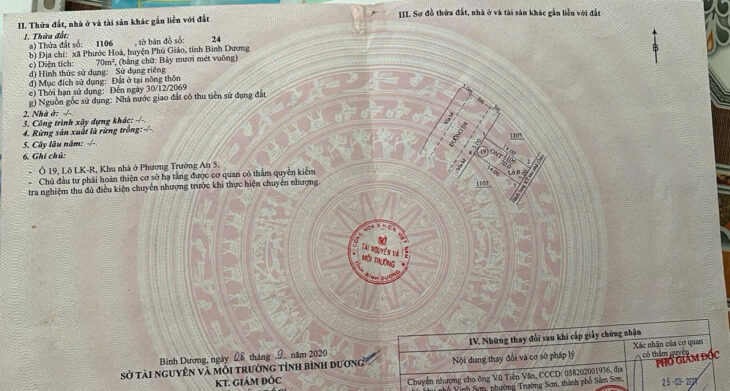 II. Thửa đất, nhà ở và tài sản khác gắn liền với đất
1. Thửa đất:
a) Thửa đất số: 1106 , tờ bản đồ số: 24
b) Địa chỉ: xã Phước Hoà, huyện Phú Giáo, tỉnh Bình Dương
c) Diện tích: 70m², (bằng chữ: Bảy mươi mét vuông)
d) Hình thức sử dụng: Sử dụng riêng
đ) Mục đích sử dụng: Đất ở tại nông thôn
e) Thời hạn sử dụng: Đến ngày 30/12/2069
g) Nguồn gốc sử dụng: Nhà nước giao đất có thu tiền sử dụng đất
2. Nhà ở: -/-
3. Công trình xây dựng khác: -/-
4. Rừng sản xuất là rừng trồng: -/-
5. Cây lâu năm: -/-
6. Ghi chú:
- Ô 19, Lô LK-R, Khu nhà ở Phương Trường An 5.
- Chủ đầu tư phải hoàn thiện cơ sở hạ tầng được cơ quan có thẩm quyền kiểm
tra nghiệm thu đủ điều kiện chuyển nhượng trước khi thực hiện chuyển nhượng.
Bình Dương, ngày 08 tháng 9 năm 2020
SỞ TÀI NGUYÊN VÀ MÔI TRƯỜNG TỈNH BÌNH DƯƠNG
KT. GIÁM ĐỐC
CỘNG HÒA X.H.C.N VIỆT NAM
SỞ
TÀI NGUYÊN VÀ
MÔI TRƯỜNG
TỈNH BÌNH DƯƠNG
III. Sơ đồ thửa đất, nhà ở và tài sản khác gắn liền với đất
B
Vỉa hè
ĐƯỜNG D1
Vỉa hè
1105
14.00
ONT
1106
70.0
19
Lô R
14.00
5.00
1107
IV. Những thay đổi sau khi cấp giấy chứng nhận
Nội dung thay đổi và cơ sở pháp lý
Xác nhận của cơ quan
có thẩm quyền
PHÓ GIÁM ĐỐC
Chuyển nhượng cho ông Vũ Tiến Văn, CCCD: 038202001936, địa
phố Vinh Sơn, phường Trường Sơn, thành phố Sầm Sơn,
25-03-